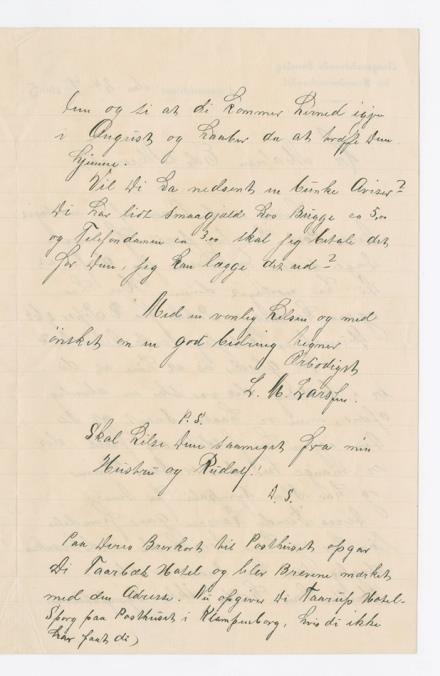 dem og si at di kommer herned igjen
i August og haaber da at træffe dem
hjemme.
Vil Di ha nedsent en bunke Aviser?
Di har lidt smaagjæld hos Bugge ca 5.00
og Telefondamen ca 3.00 skal jeg betale det
for Dem, jeg kan lægge det ud?
Med en venlig hilsen og med
ønsket om en god bedring tegner
Ærbødigst
L. M. Larsen.
P.S.
Skal hilse Dem saameget fra min
Hustru og Rudolf!
D. S.
Paa Deres Brevkort til Posthuset opgav
Di Taarbæk Hotel og blev Brevene mærket
med den Adresse. Nu opgiver Di Taarup Hotel.
Spørg paa Posthuset i Klampenborg, hvis di ikke
har faat di)